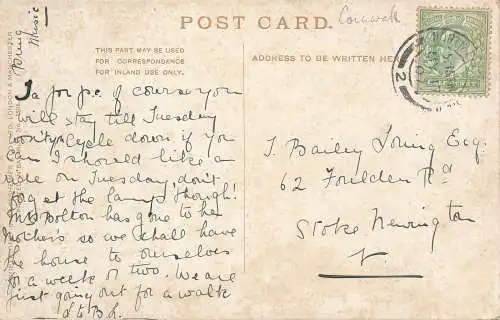 bring
music
POST CARD.
Cornwall
THIS PART MAY BE USED
FOR CORRESPONDENCE
FOR INLAND USE ONLY.
ADDRESS TO BE WRITTEN HE
Ta for p.c. of course you
will stay till Tuesday
won't you Cycle down if you
can I should like a
ride on Tuesday, don't
at the lamp though!
Mrs Bolton has gone to her
Mother's so we shall have
the house to ourselves
for a week or two. We are
just going out for a walk
J. Bailey Loring Esq.
62 Foulden Rd
Stoke Newington
N.
2
LONDON & MANCHESTER